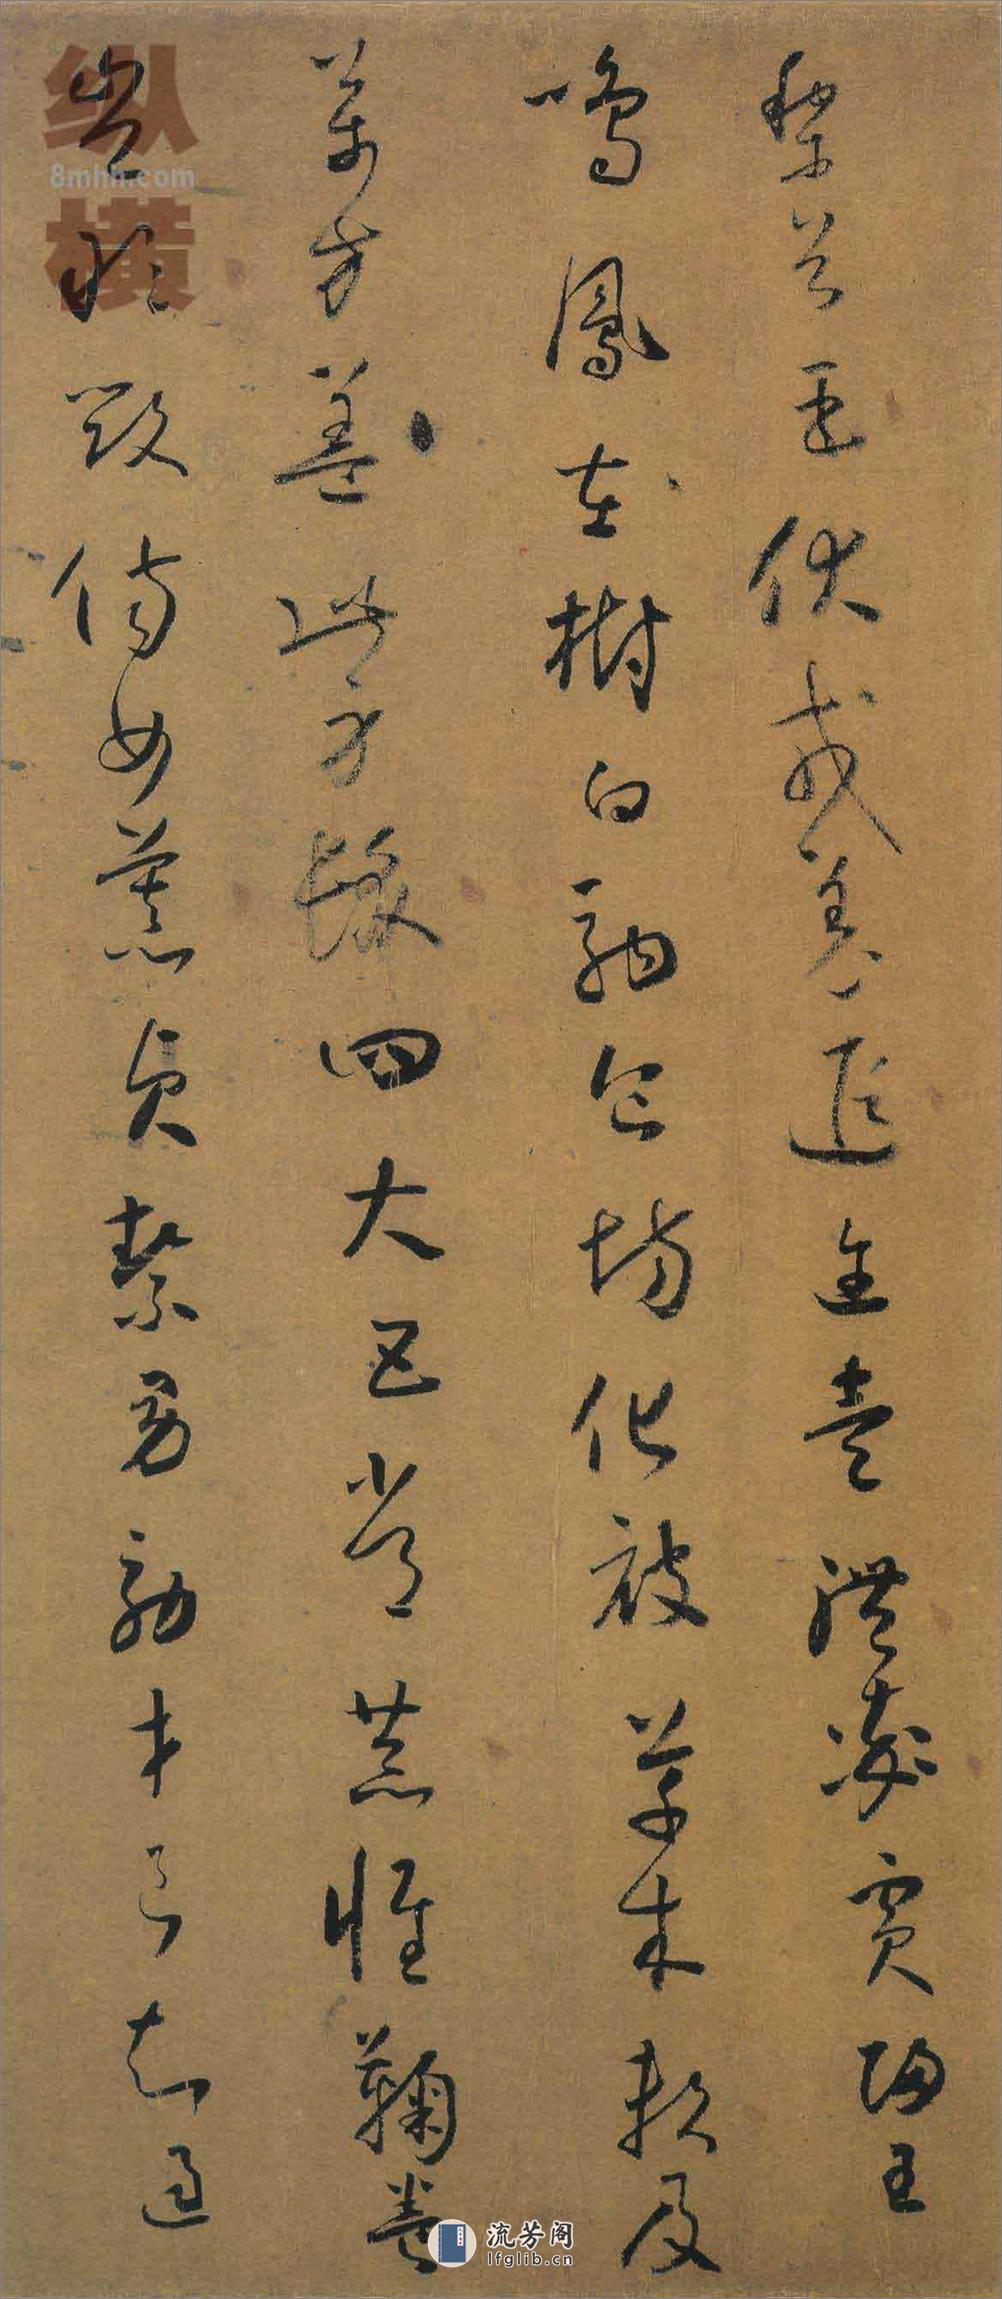 黎首臣伏戎羌遐邇壹體率賓歸王
鳴鳳在樹白駒食場化被草木賴及
萬方蓋此身髮四大五常恭惟鞠養
豈敢毀傷女慕貞絜男效才良知過
纵横
8mhh.com
流芳阁
lfglib.cn